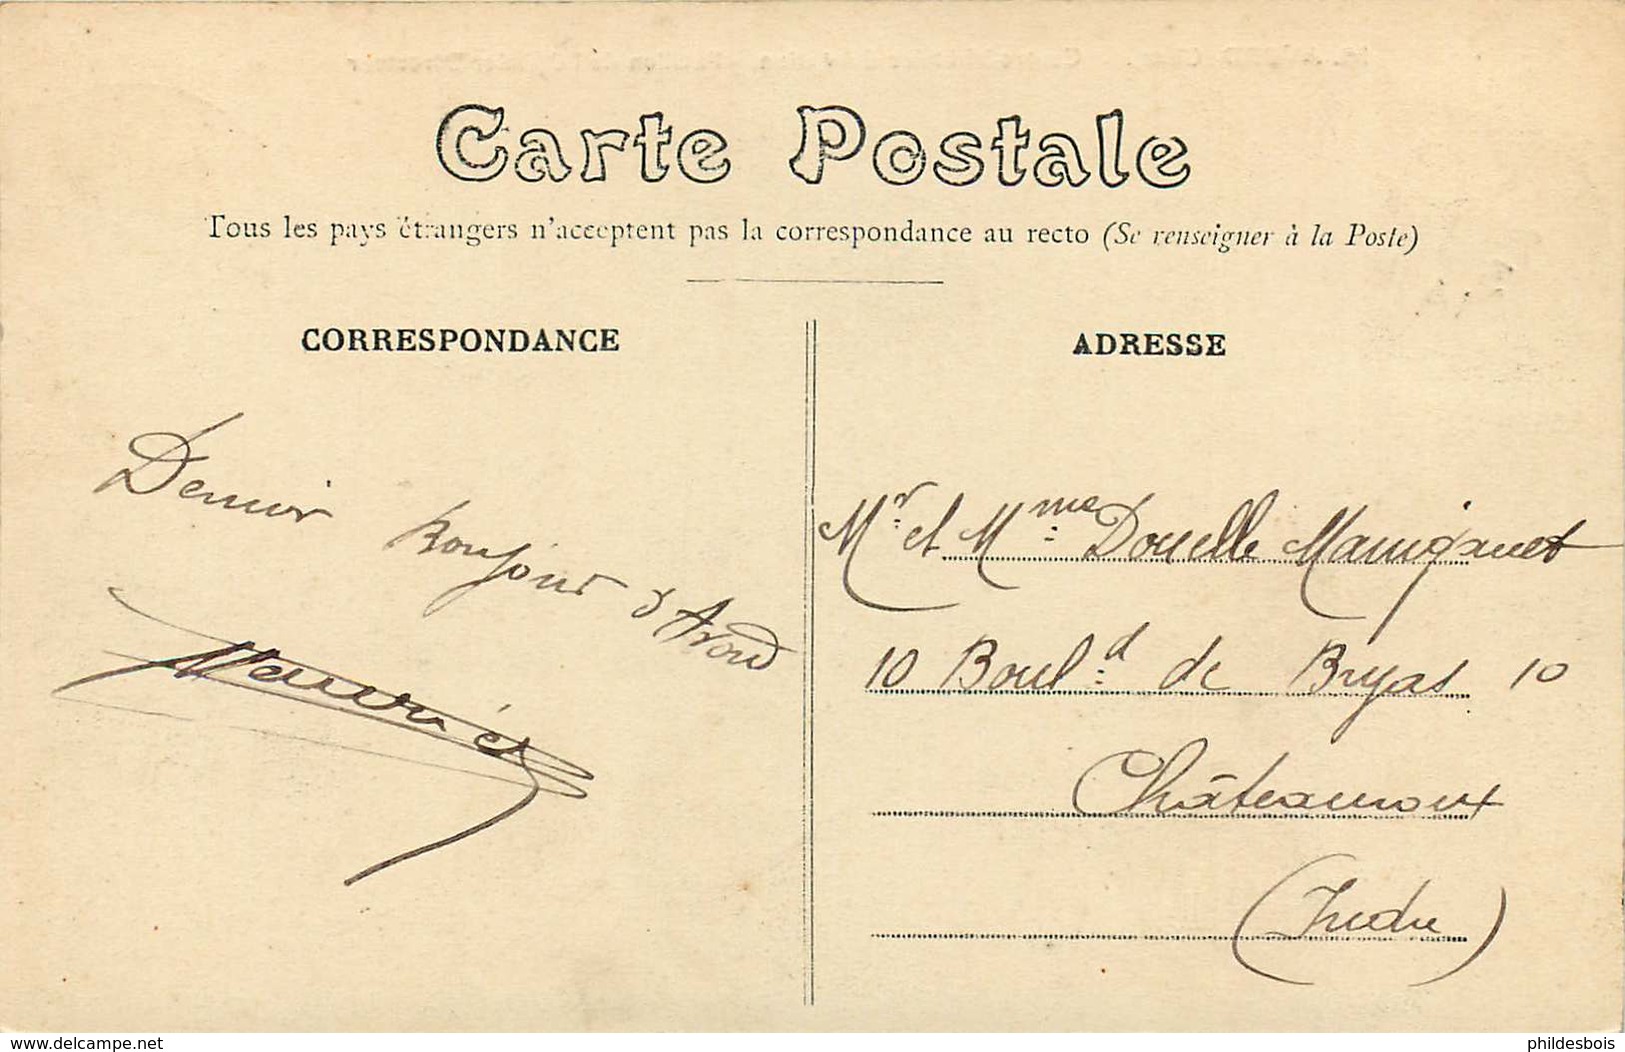 Carte Postale
Tous les pays étrangers n'acceptent pas la correspondance au recto (Se renseigner à la Poste)
CORRESPONDANCE
ADRESSE
Dernier
Bonjour d'Avord
Mr et Mme Douelle
10 Bould de Bryas 10
Châteauroux
(Indre)
delcampe.net
phildesbois